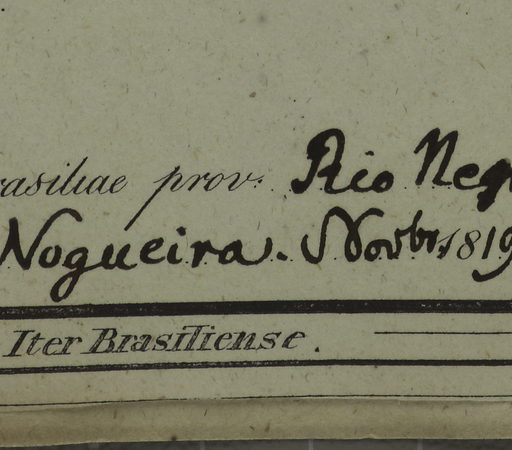 rasiliae prov. Rio Neg
Nogueira. Novbr. 1819
Iter Brasiliense.